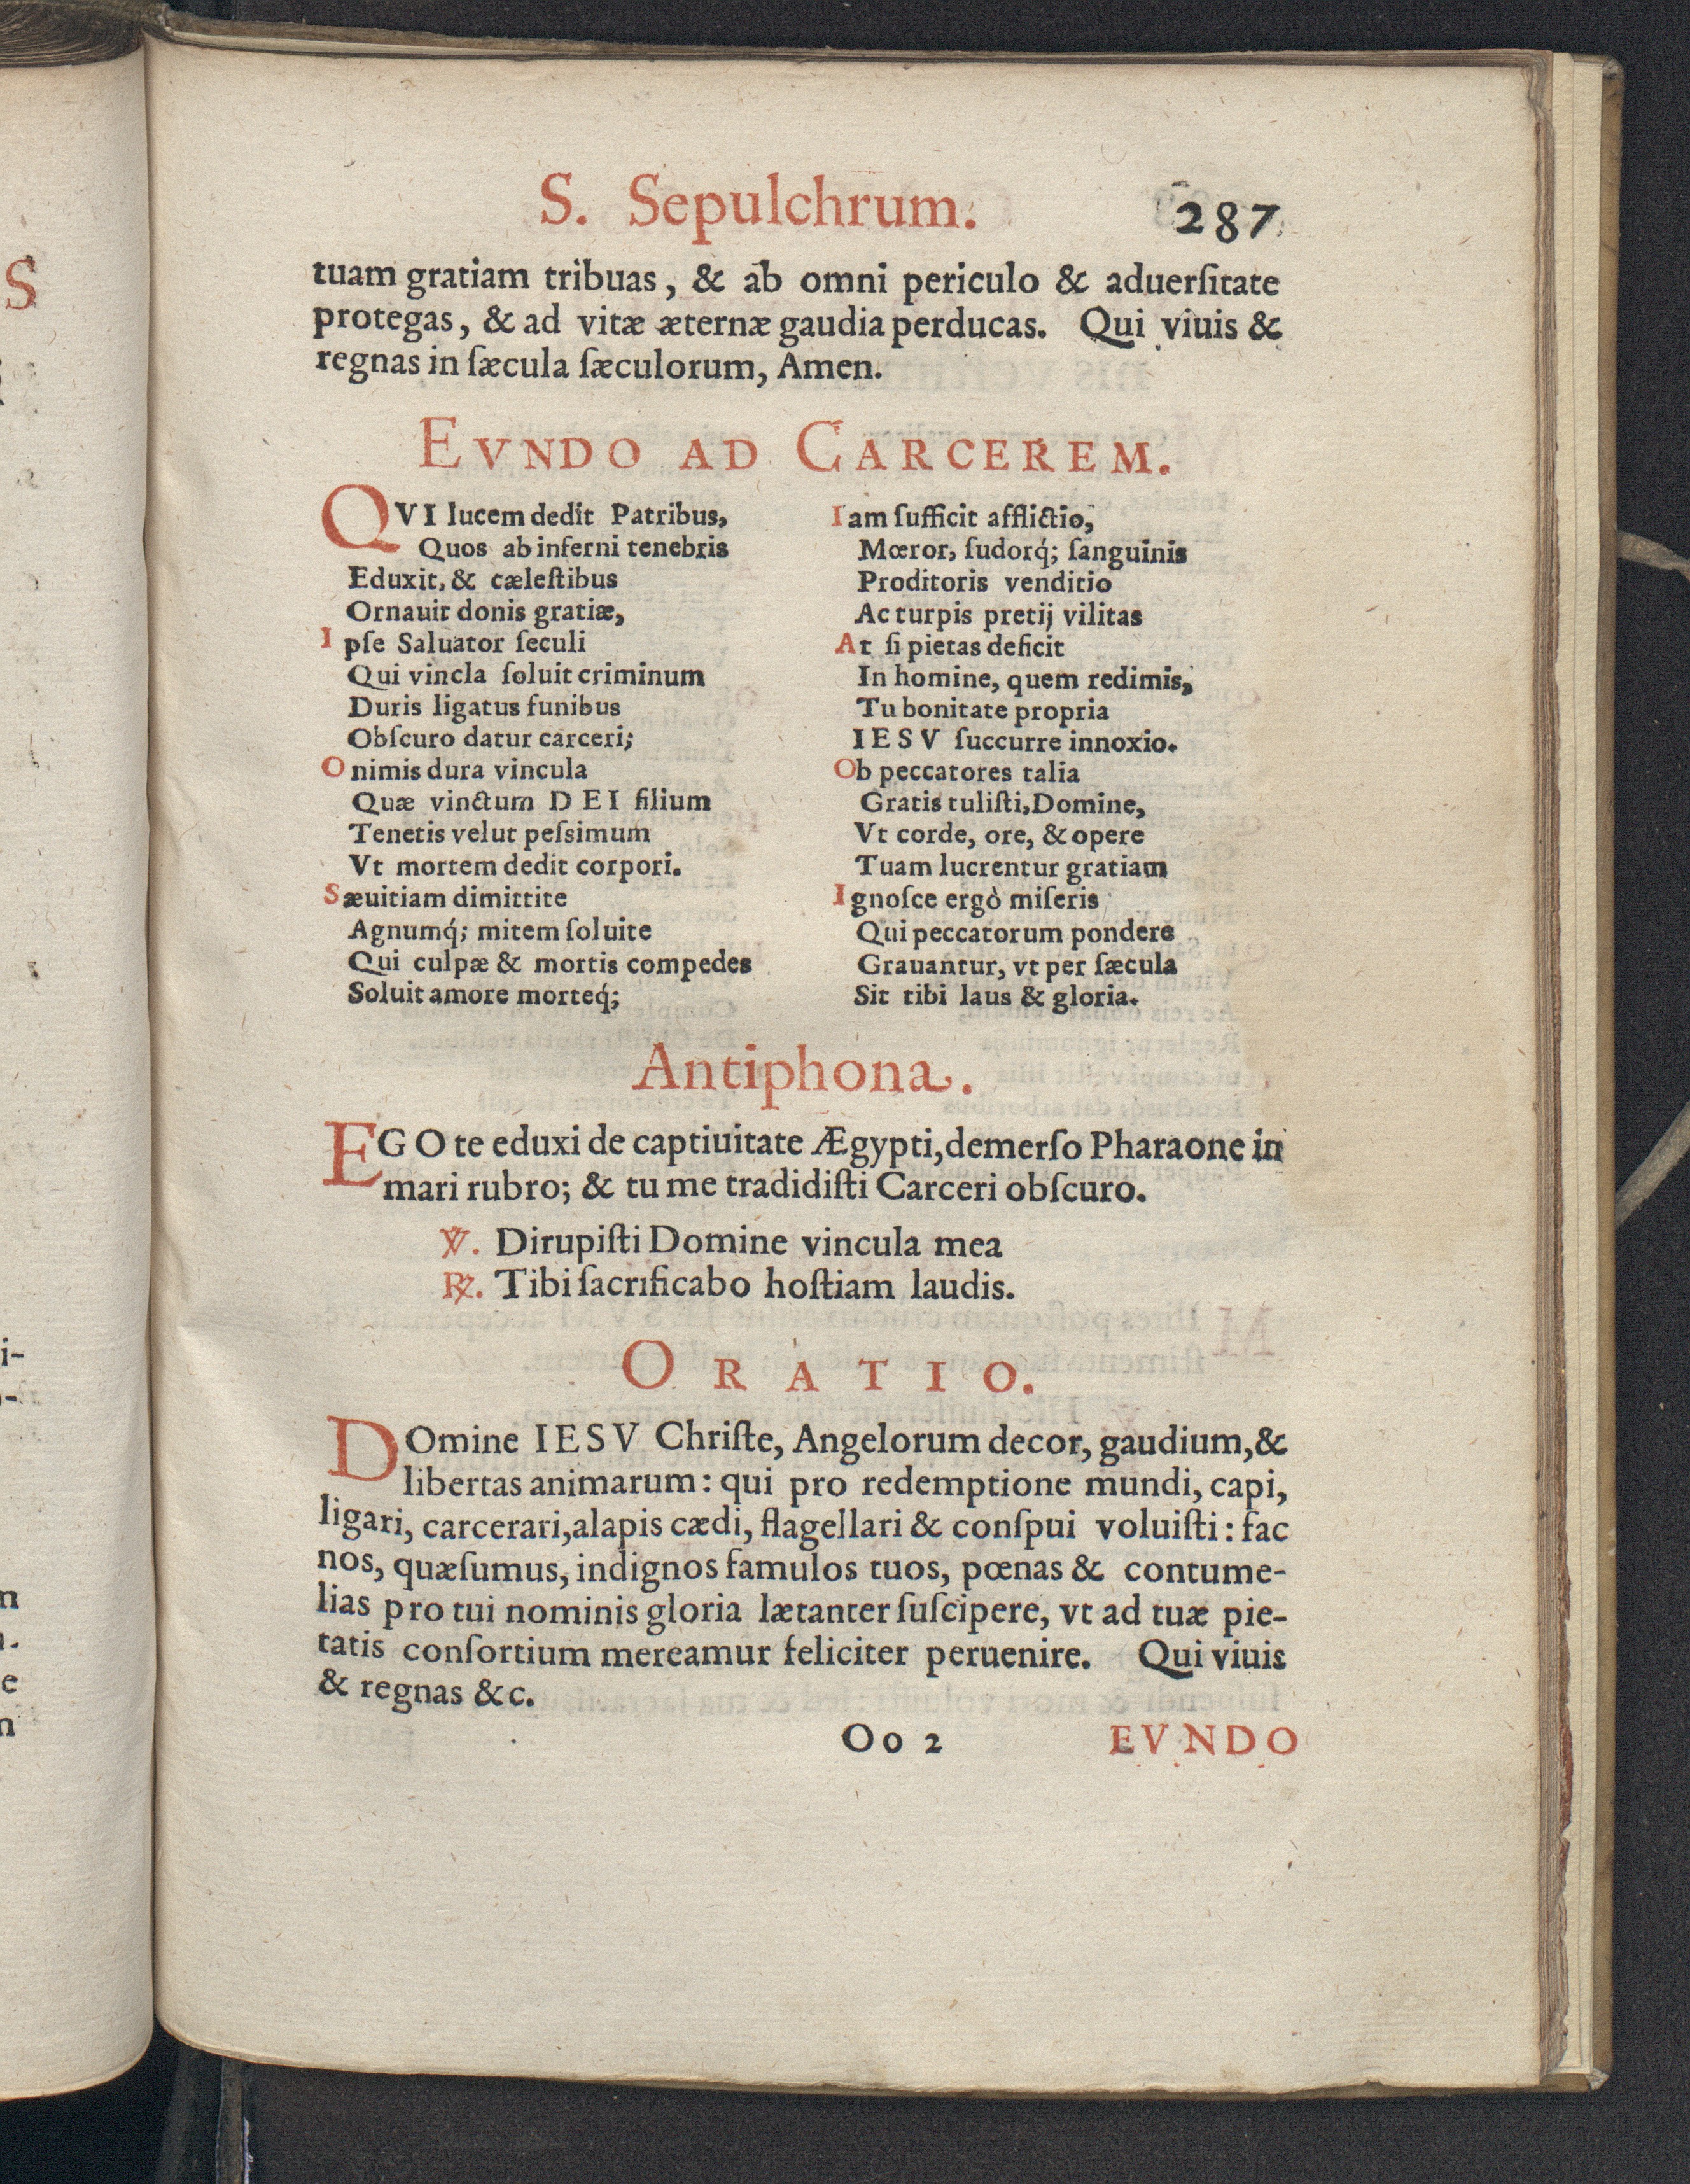 S. Sepulchrum. 287
tuam gratiam tribuas, & ab omni periculo & aduerſitate
protegas, & ad vitæ æternæ gaudia perducas. Qui viuis &
regnas in ſæcula ſæculorum, Amen.
EVNDO AD CARCEREM.
QVI lucem dedit Patribus,
Quos ab inferni tenebris
Eduxit, & cæleſtibus
Ornauit donis gratiæ,
Ipſe Saluator ſeculi
Qui vincla ſoluit criminum
Duris ligatus funibus
Obſcuro datur carceri;
O nimis dura vincula
Quæ vinctum DEI filium
Tenetis velut peſsimum
Vt mortem dedit corpori.
Sæuitiam dimittite
Agnumq́; mitem ſoluite
Qui culpæ & mortis compedes
Soluit amore morteq́;
Iam ſufficit afflictio,
Mœror, ſudorq́; ſanguinis
Proditoris venditio
Ac turpis pretij vilitas
At ſi pietas deficit
In homine, quem redimis,
Tu bonitate propria
IESV ſuccurre innoxio.
Ob peccatores talia
Gratis tuliſti, Domine,
Vt corde, ore, & opere
Tuam lucrentur gratiam
Ignoſce ergò miſeris
Qui peccatorum pondere
Grauantur, vt per ſæcula
Sit tibi laus & gloria.
Antiphona.
EGO te eduxi de captiuitate Ægypti, demerſo Pharaone in
mari rubro; & tu me tradidiſti Carceri obſcuro.
℣. Dirupiſti Domine vincula mea
℟. Tibi ſacrificabo hoſtiam laudis.
ORATIO.
DOmine IESV Chriſte, Angelorum decor, gaudium, &
libertas animarum: qui pro redemptione mundi, capi,
ligari, carcerari, alapis cædi, flagellari & conſpui voluiſti: fac
nos, quæſumus, indignos famulos tuos, pœnas & contume-
lias pro tui nominis gloria lætanter ſuſcipere, vt ad tuæ pie-
tatis conſortium mereamur feliciter peruenire. Qui viuis
& regnas &c.
Oo 2 EVNDO